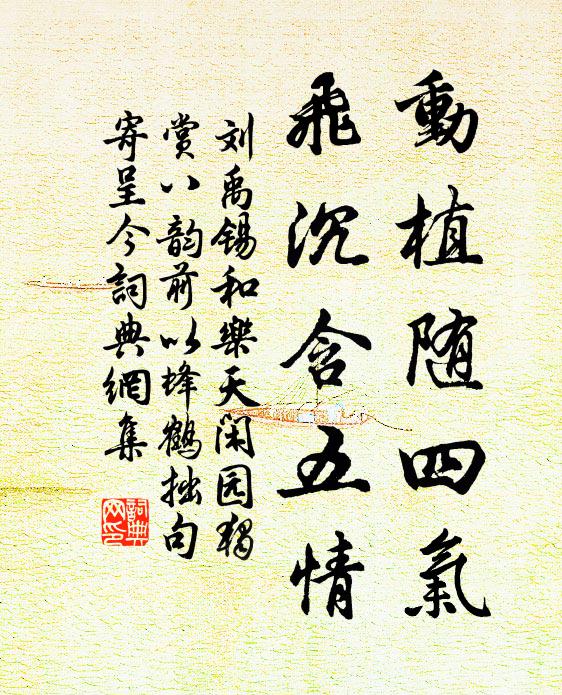 動植随四氣
飛沉含五情
刘禹锡和樂天闲园獨
賞八韵前以蜂鶴拙句
寄呈今詞典網集
詞典
网印